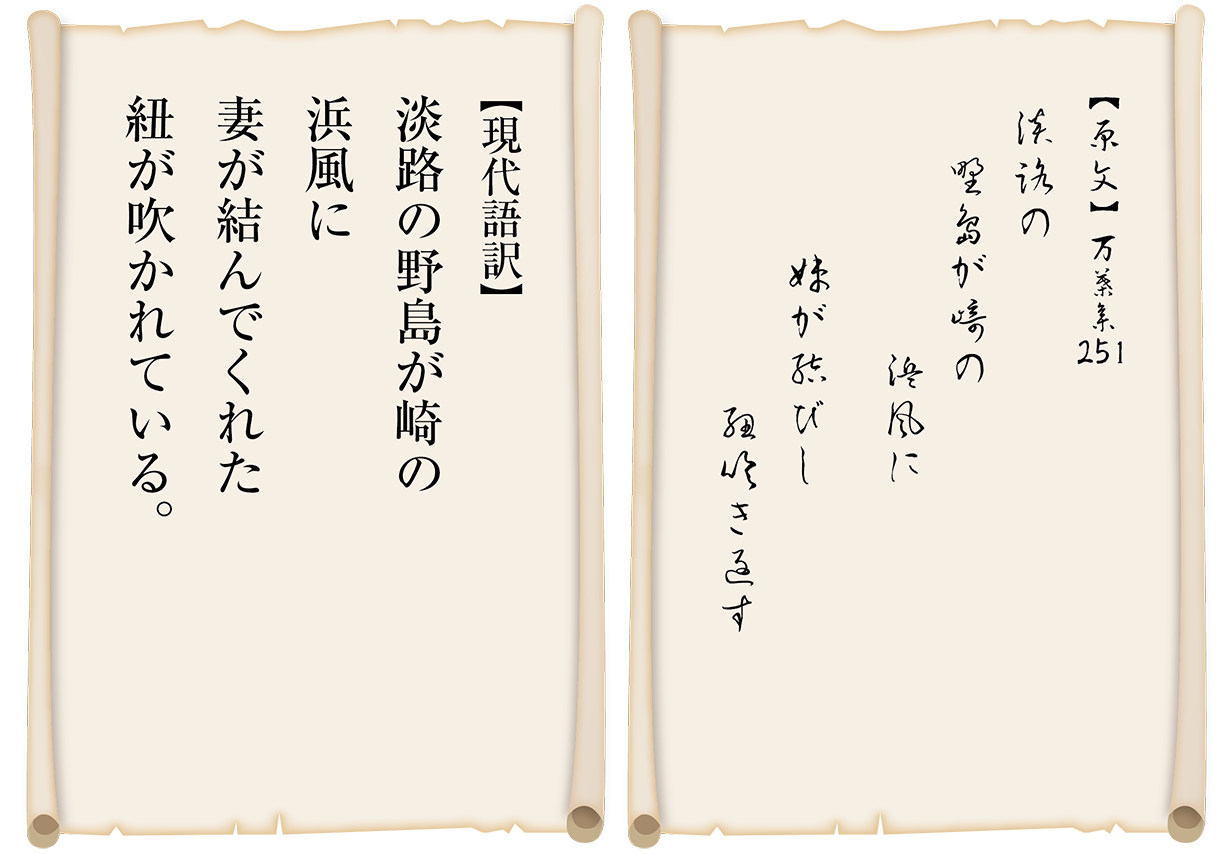 【原文】万葉集251
淡路の
野島が崎の
浜風に
妹が結びし
紐吹き返す
【現代語訳】
淡路の野島が崎の
浜風に
妻が結んでくれた
紐が吹かれている。